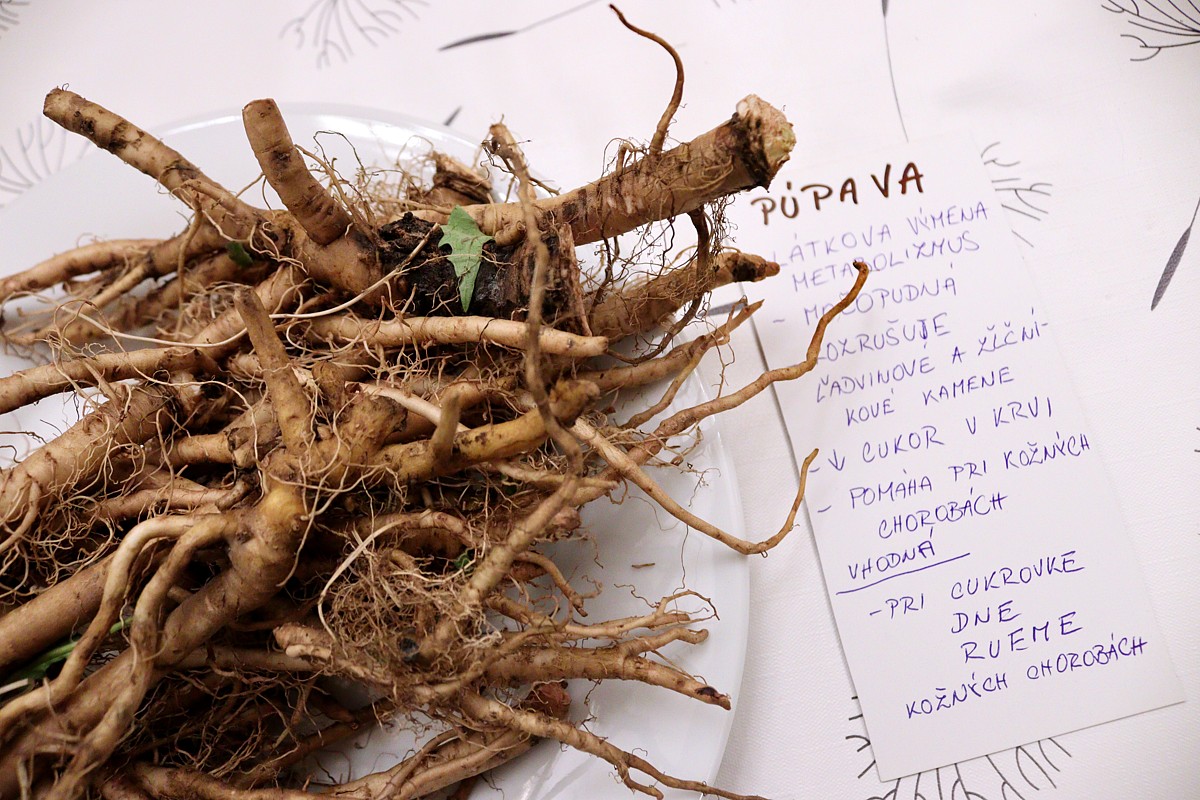 PÚPAVA
LÁTKOVA VÝMENA
METABOLIZMUS
- MOČOPUDNÁ
ROZRUŠUJE
ĽADVINOVE A ŽLČNÍ-
KOVÉ KAMENE
- ↓ CUKOR V KRVI
- POMÁHA PRI KOŽNÝCH
CHOROBÁCH
VHODNÁ
- PRI CUKROVKE
DNE
RUEME
KOŽNÝCH CHOROBÁCH